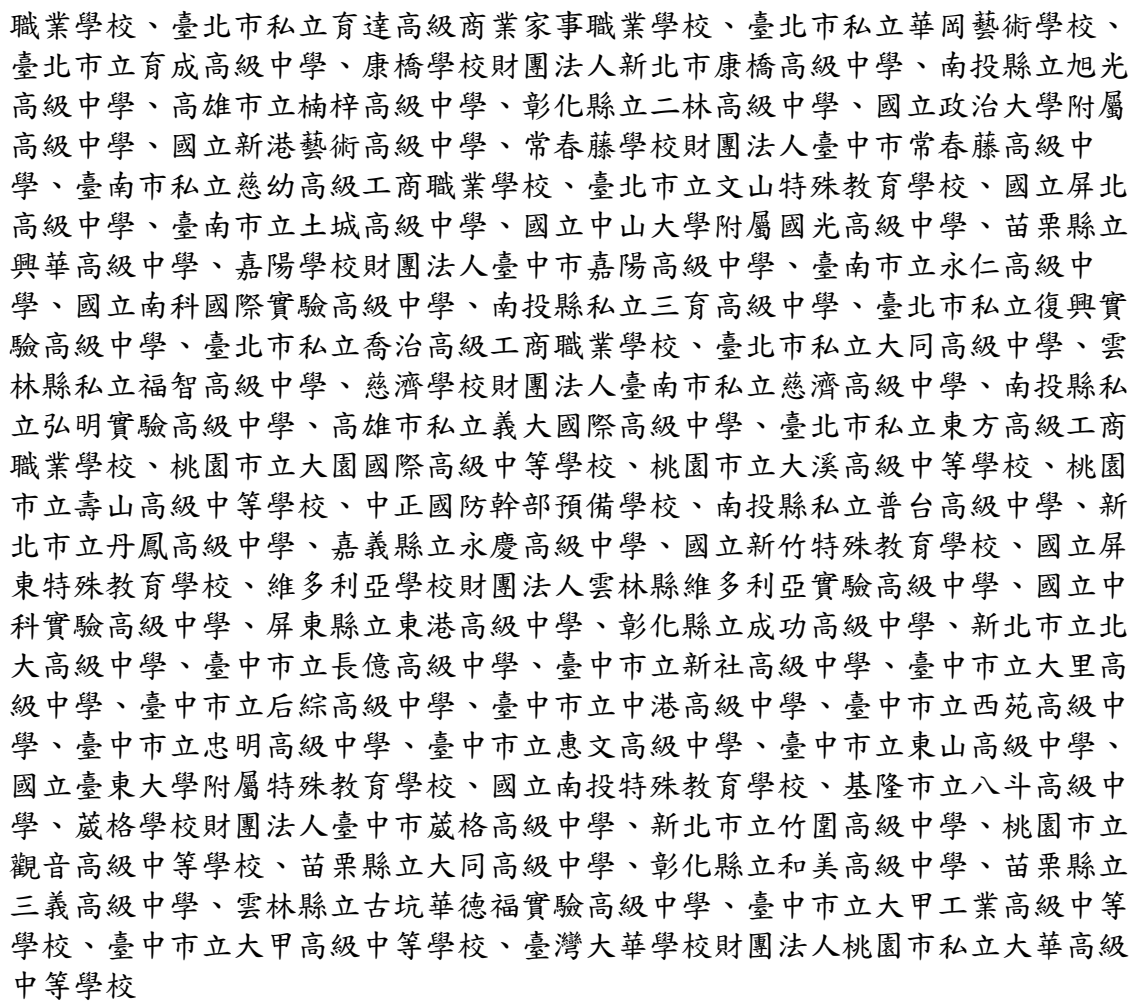 職業學校、臺北市私立育達高級商業家事職業學校、臺北市私立華岡藝術學校、
臺北市立育成高級中學、康橋學校財團法人新北市康橋高級中學、南投縣立旭光
高級中學、高雄市立楠梓高級中學、彰化縣立二林高級中學、國立政治大學附屬
高級中學、國立新港藝術高級中學、常春藤學校財團法人臺中市常春藤高級中
學、臺南市私立慈幼高級工商職業學校、臺北市立文山特殊教育學校、國立屏北
高級中學、臺南市立土城高級中學、國立中山大學附屬國光高級中學、苗栗縣立
興華高級中學、嘉陽學校財團法人臺中市嘉陽高級中學、臺南市立永仁高級中
學、國立南科國際實驗高級中學、南投縣私立三育高級中學、臺北市私立復興實
驗高級中學、臺北市私立喬治高級工商職業學校、臺北市私立大同高級中學、雲
林縣私立福智高級中學、慈濟學校財團法人臺南市私立慈濟高級中學、南投縣私
立弘明實驗高級中學、高雄市私立義大國際高級中學、臺北市私立東方高級工商
職業學校、桃園市立大園國際高級中等學校、桃園市立大溪高級中等學校、桃園
市立壽山高級中等學校、中正國防幹部預備學校、南投縣私立普台高級中學、新
北市立丹鳳高級中學、嘉義縣立永慶高級中學、國立新竹特殊教育學校、國立屏
東特殊教育學校、維多利亞學校財團法人雲林縣維多利亞實驗高級中學、國立中
科實驗高級中學、屏東縣立東港高級中學、彰化縣立成功高級中學、新北市立北
大高級中學、臺中市立長億高級中學、臺中市立新社高級中學、臺中市立大里高
級中學、臺中市立后綜高級中學、臺中市立中港高級中學、臺中市立西苑高級中
學、臺中市立忠明高級中學、臺中市立惠文高級中學、臺中市立東山高級中學、
國立臺東大學附屬特殊教育學校、國立南投特殊教育學校、基隆市立八斗高級中
學、葳格學校財團法人臺中市葳格高級中學、新北市立竹圍高級中學、桃園市立
觀音高級中等學校、苗栗縣立大同高級中學、彰化縣立和美高級中學、苗栗縣立
三義高級中學、雲林縣立古坑華德福實驗高級中學、臺中市立大甲工業高級中等
學校、臺中市立大甲高級中等學校、臺灣大華學校財團法人桃園市私立大華高級
中等學校